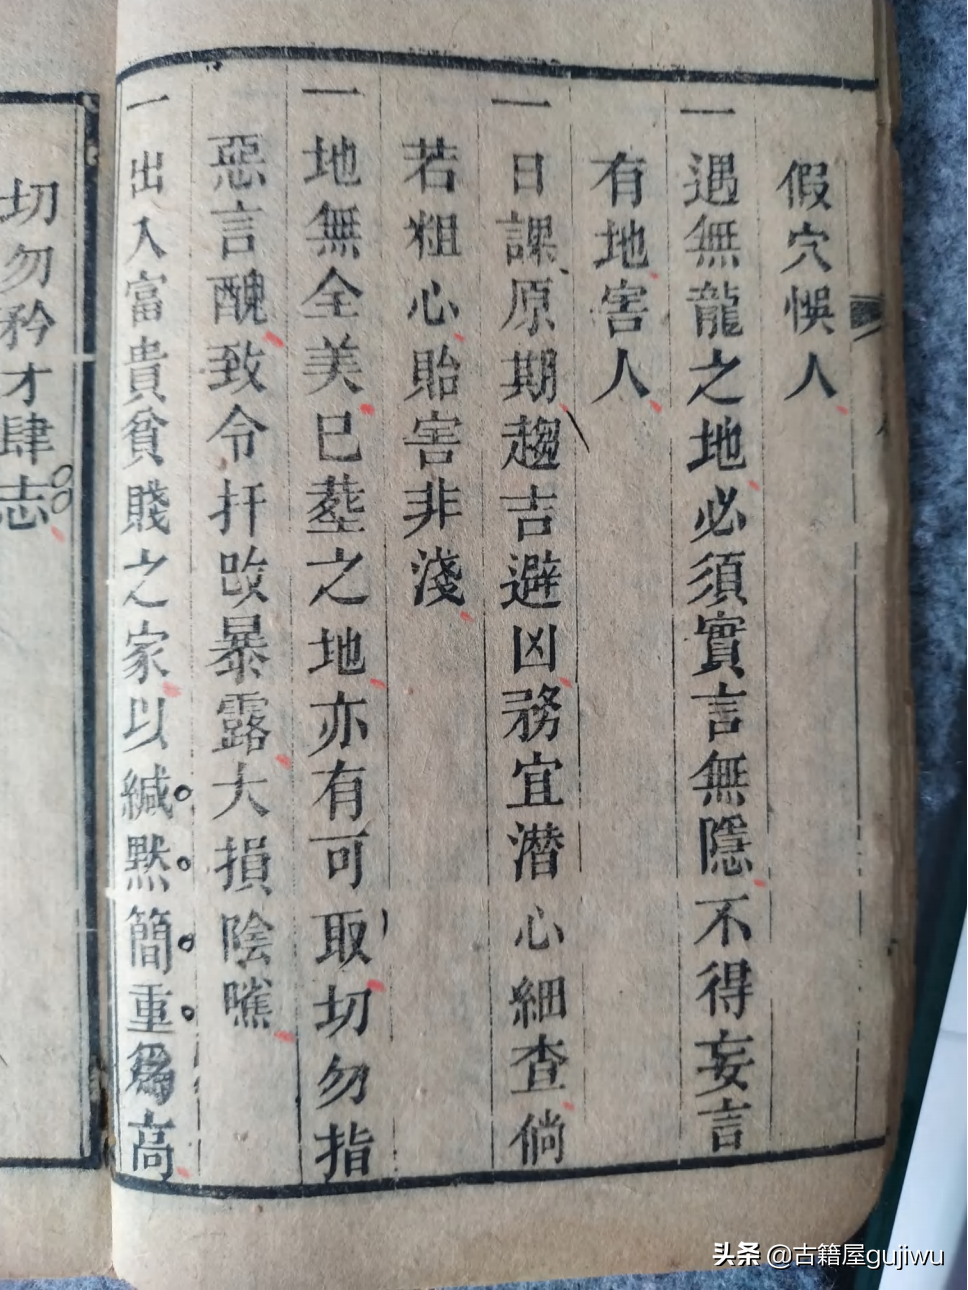 假穴悞人
一遇無龍之地必須實言無隱不得妄言
有地害人
一日課原期趨吉避凶務宜潛心細查倘
若粗心貽害非淺
一地無全美已塟之地亦有可取切勿指
惡言醜致令扦改暴露大損陰隲
一出入富貴貧賤之家以緘默簡重爲高
切勿矜才肆志
头条 @古籍屋gujiwu